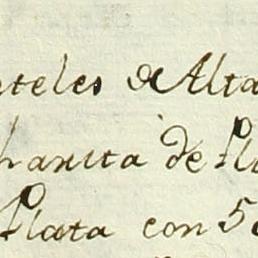 teles de Alta
hanita de Pla
Plata con 5